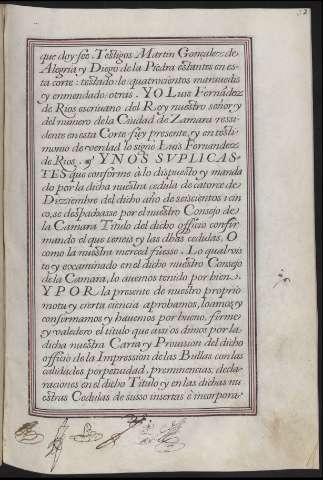 que doy fee. Testigos Martin Gonçalez de
Alegria y Diego de la Piedra estantes en es-
ta corte: testado: le quatrocientos maruedis
y enmendado otras. YO Luis Fernãdez
de Rios escriuano del Rey nuestro señor y
del numero de la Ciudad de Zamara ressi-
dente en esta Corte fuy presente, y en testi-
monio de verdad lo signe Luis Fernandez
de Rios. Y NOS SVPLICAS-
TES que conforme a lo dispuesto y manda
do por la dicha nuestra cedula de catorce de
Dizziembre del dicho año de seiscientos i cin
co, se despachasse por el nuestro Consejo de
la Camara Titulo del dicho officio confir
mando el que teneis y las dhas cedulas, O
como la nuestra merced fuesse. Lo qual vis
to y eccaminado en el dicho nuestro Consejo
de la Camara, lo auemos tenido por bien.
Y POR la presente de nuestro proprio
motu y cierta ciencia aprobamos, loamos y
confirmamos y hauemos por bueno, firme
y valedero el titulo que assi os dimos por la
dicha nuestra Carta y Prouision del dicho
officio de la Impression de las Bullas con las
calidades perpetuidad, preminencias, decla-
raciones en el dicho Titulo y en las dichas nu
estras Cedulas de susso insertas e incorpora-